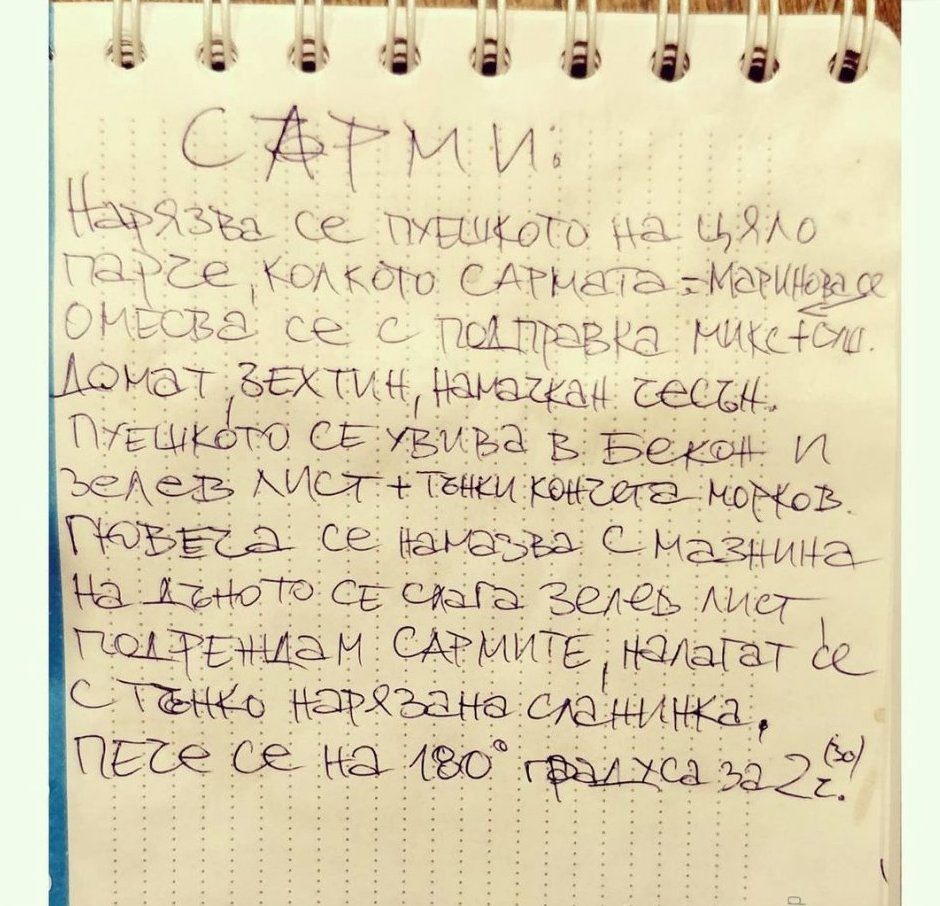 САРМИ:
Нарязва се пуешкото на цяло
парче, колкото сармата = маринова се
омесва се с подправка микс + сол.
Домат, зехтин, намачкан чесън.
Пуешкото се увива в бекон и
зелев лист + тънки кончета морков.
Гювеча се намазва с мазнина
на дъното се слага зелев лист,
подреждам сармите, налагат се
с тънко нарязана сланинка.
Пече се на 180° градуса за 2 ч. (30)